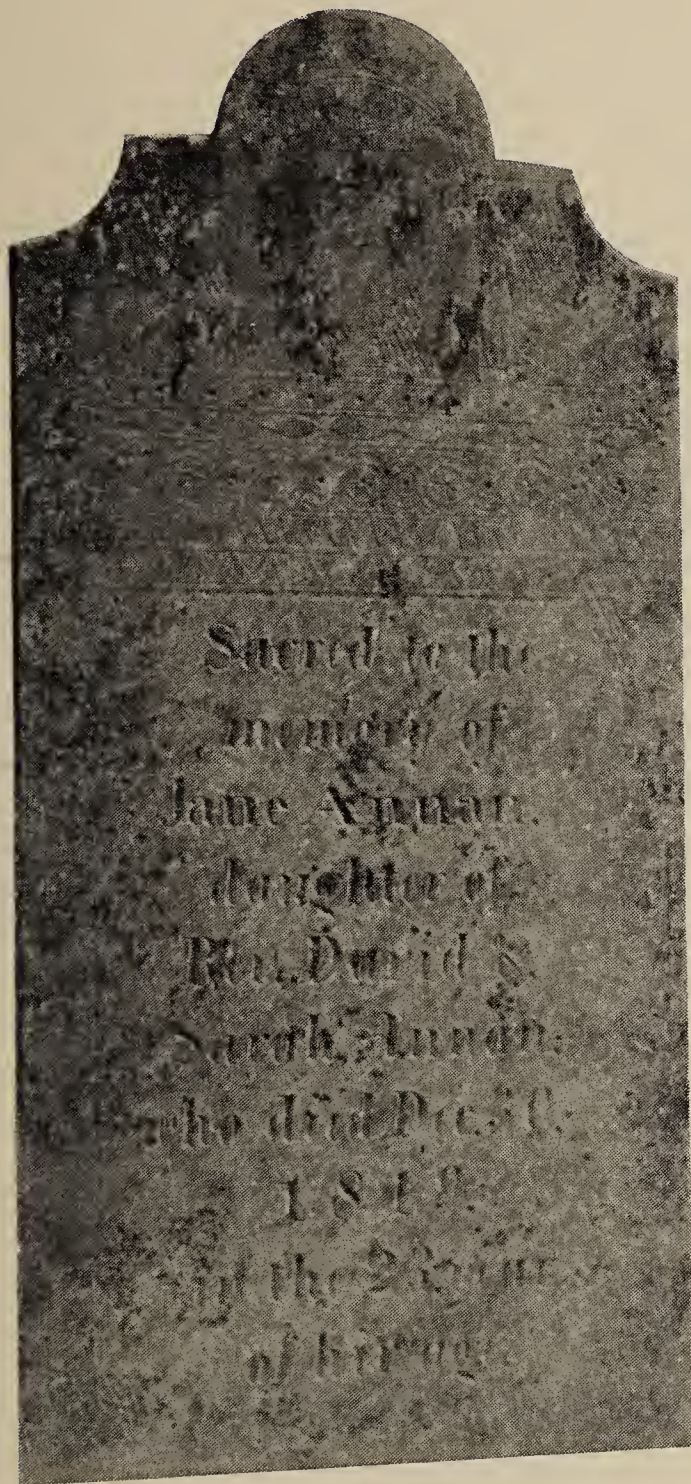 Sacred to the
memory of
Jane Annan,
daughter of
Rev. David &
Sarah Annan,
who died Dec.
in the
of her age